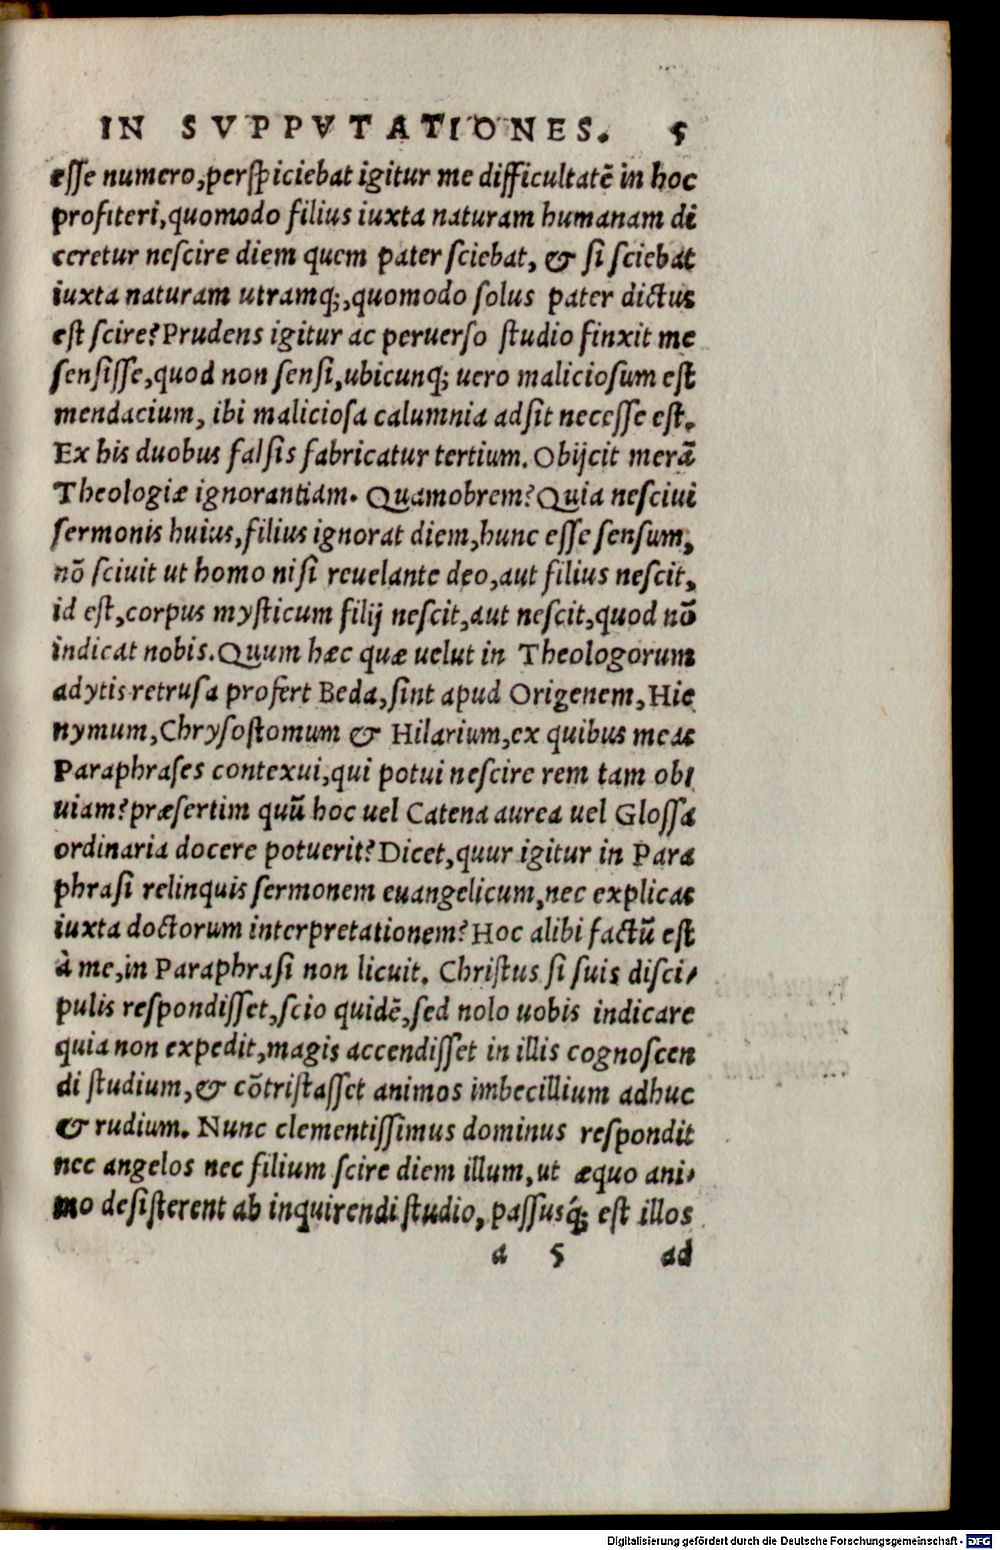 IN SVPPVTATIONES. 5
esse numero,perspiciebat igitur me difficultatē in hoc
profiteri,quomodo filius iuxta naturam humanam di
ceretur nescire diem quem pater sciebat, & si sciebat
iuxta naturam utramq;,quomodo solus pater dictus
est scire?Prudens igitur ac peruerso studio finxit me
sensisse,quod non sensi,ubicunq; uero maliciosum est
mendacium, ibi maliciosa calumnia adsit necesse est.
Ex his duobus falsis fabricatur tertium. Obijcit merā
Theologiæ ignorantiam. Quamobrem?Quia nesciui
sermonis huius,filius ignorat diem,hunc esse sensum,
nō sciuit ut homo nisi reuelante deo,aut filius nescit,
id est,corpus mysticum filij nescit,aut nescit,quod nō
indicat nobis.Quum hæc quæ uelut in Theologorum
adytis retrusa profert Beda,sint apud Origenem,Hie
nymum,Chrysostomum & Hilarium,ex quibus meas
Paraphrases contexui,qui potui nescire rem tam ob/
uiam?præsertim quū hoc uel Catena aurea uel Glossa
ordinaria docere potuerit?Dicet,quur igitur in Para
phrasi relinquis sermonem euangelicum,nec explicas
iuxta doctorum interpretationem?Hoc alibi factū est
à me,in Paraphrasi non licuit. Christus si suis disci/
pulis respondisset,scio quidē,sed nolo uobis indicare
quia non expedit,magis accendisset in illis cognoscen
di studium,& cōtristasset animos imbecillium adhuc
& rudium. Nunc clementissimus dominus respondit
nec angelos nec filium scire diem illum,ut æquo ani/
mo desisterent ab inquirendi studio, passusq́; est illos
a 5 ad
Digitalisierung gefördert durch die Deutsche Forschungsgemeinschaft - DFG